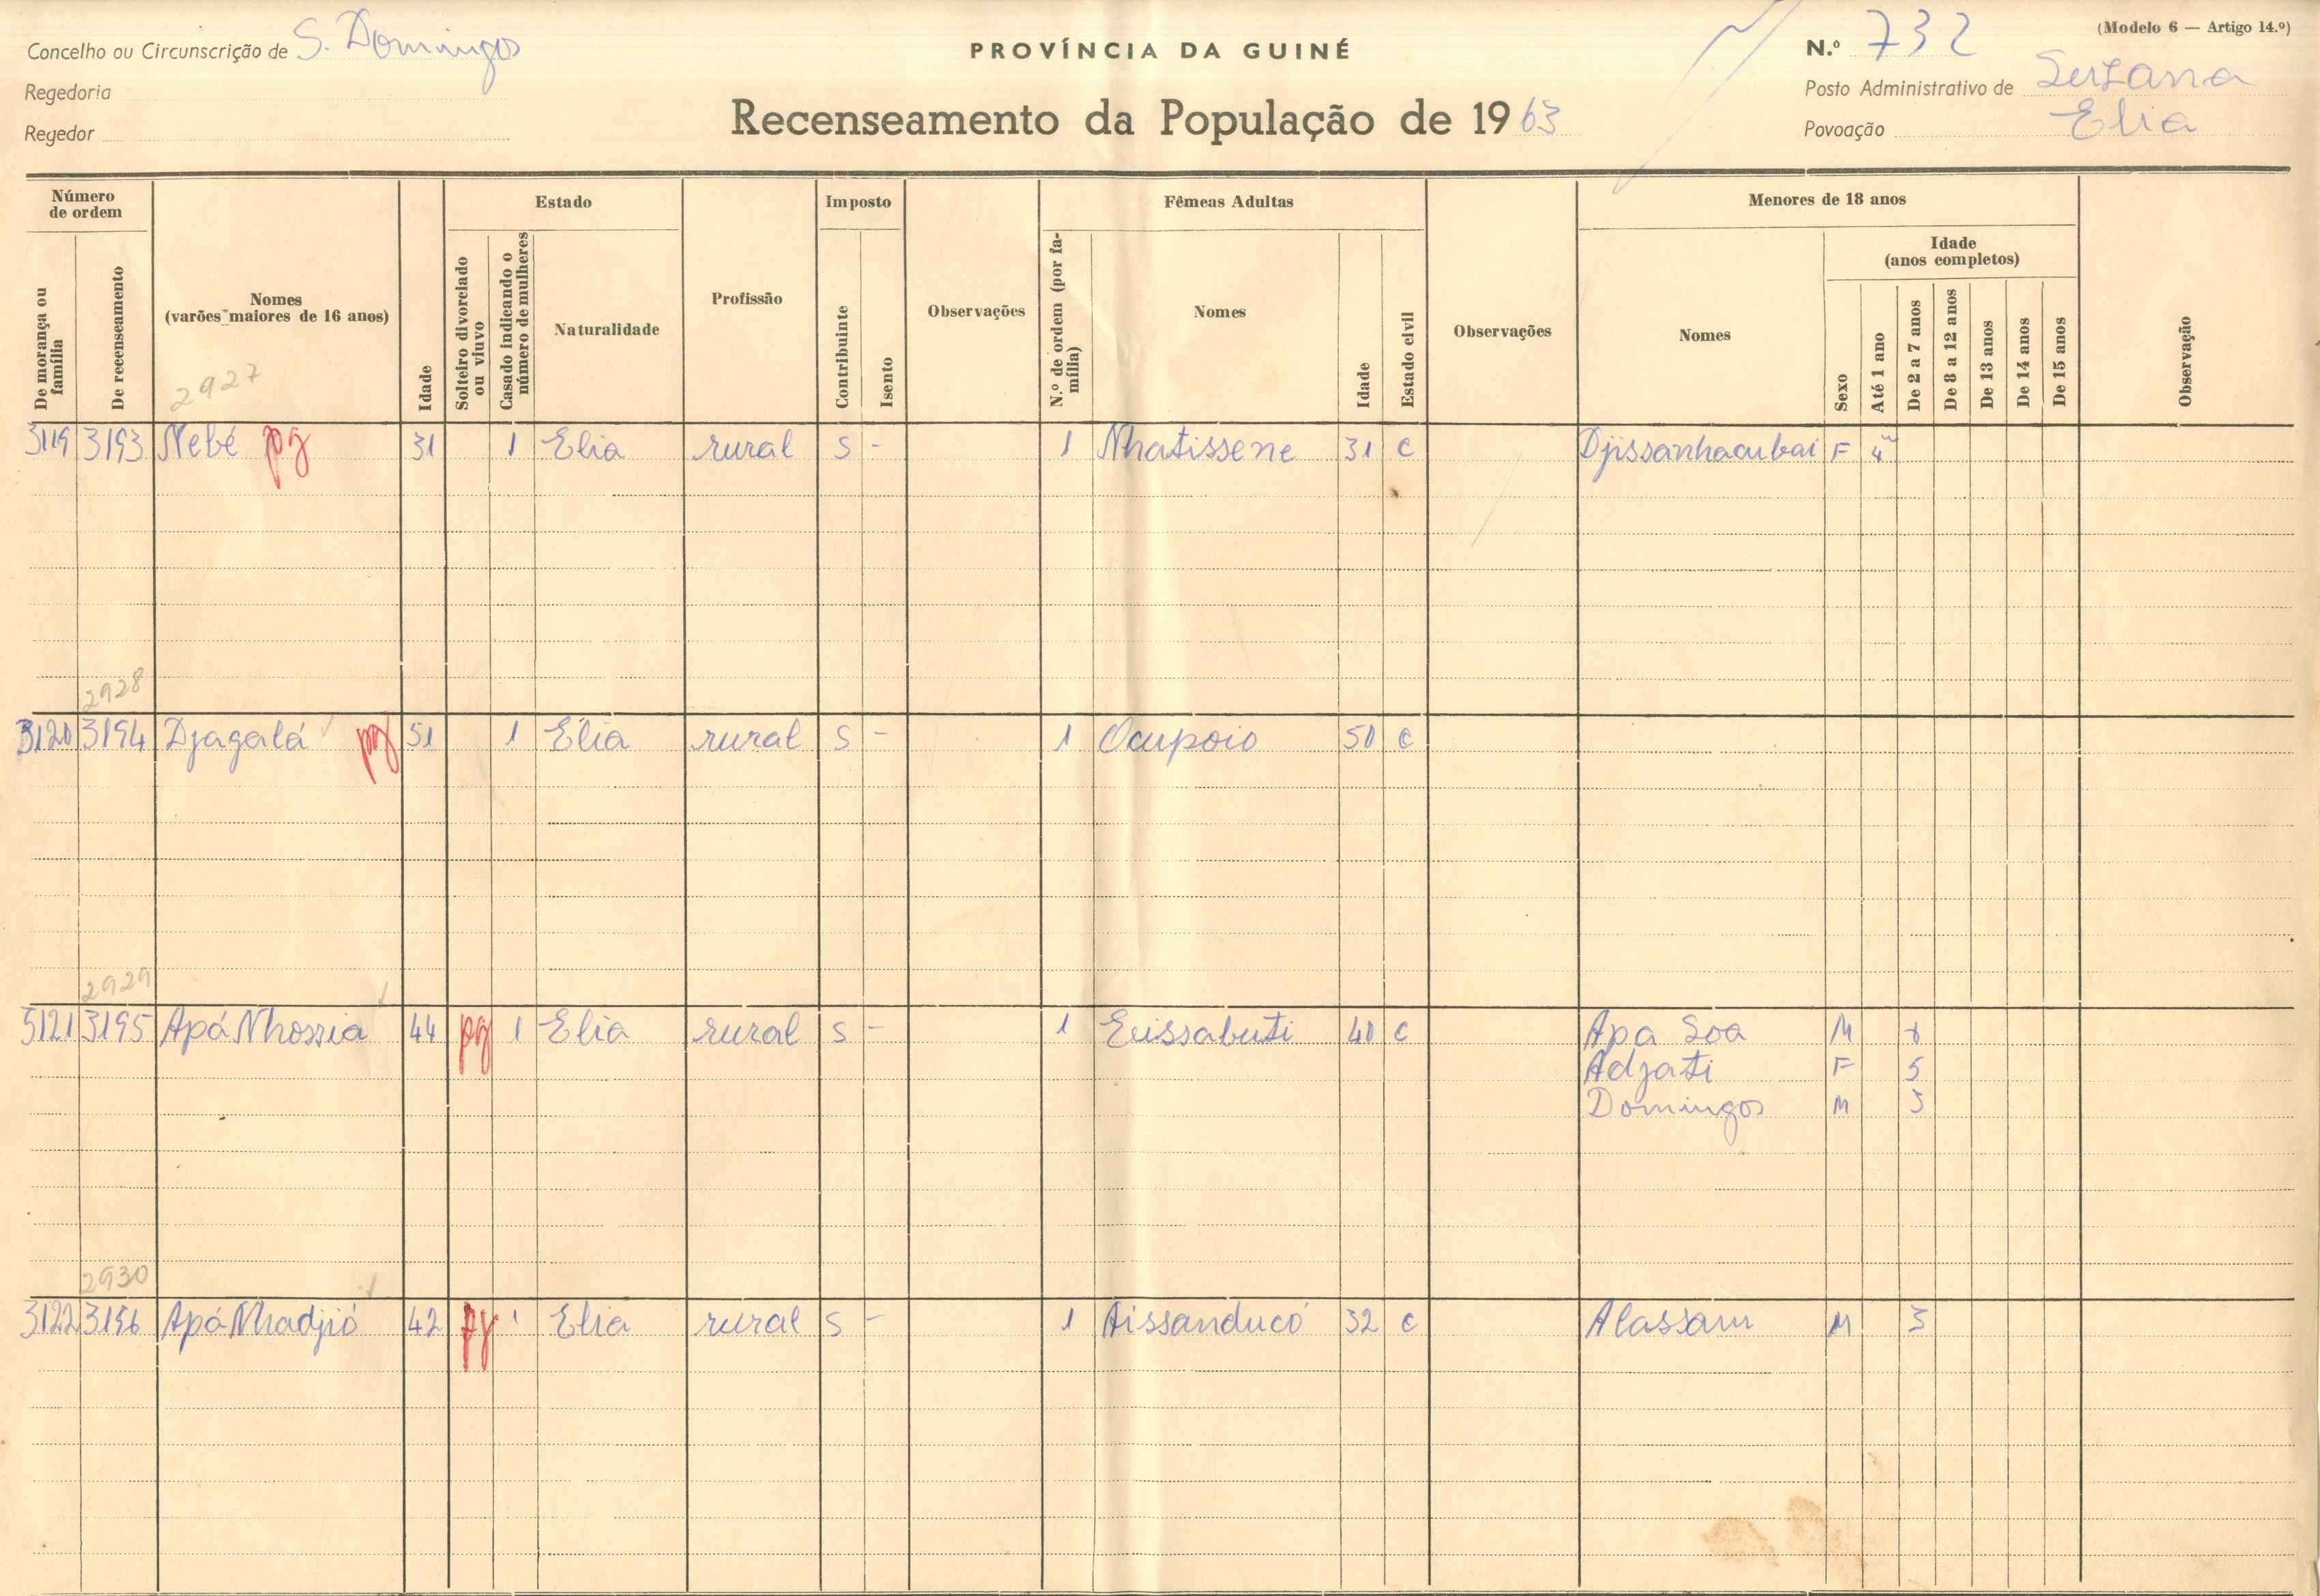 (Modelo 6 — Artigo 14.º)
Concelho ou Circunscrição de S. Domingos
PROVÍNCIA DA GUINÉ
N.º 732
Regedoria
Posto Administrativo de Suzana
Regedor
Recenseamento da População de 1963
Povoação Elia
Número de ordem
De morança ou família
De recenseamento
Nomes (varões maiores de 16 anos)
Idade
Estado
Solteiro divorciado ou viuvo
Casado indicando o número de mulheres
Naturalidade
Profissão
Imposto
Contribuinte
Isento
Observações
Fêmeas Adultas
N.º de ordem (por família)
Nomes
Idade
Estado civil
Observações
Menores de 18 anos
Nomes
Sexo
Idade (anos completos)
Até 1 ano
De 2 a 7 anos
De 8 a 12 anos
De 13 anos
De 14 anos
De 15 anos
Observação
2927
3119 3193 Nebé pg 31 1 Elia rural S - 1 Nhatissene 31 c Djissanhacubai F 4
2928
3120 3194 Djagalá pg 51 1 Elia rural S - 1 Ocupoio 50 c
2929
3121 3195 Apá Nhossia 44 pg 1 Elia rural S - 1 Euissabuti 40 c Apa Soa M
Adjati F 5
Domingos M 3
2930
3122 3196 Apá Nhadjió 42 pg 1 Elia rural S - 1 Aissanducó 32 c Alassam M 3